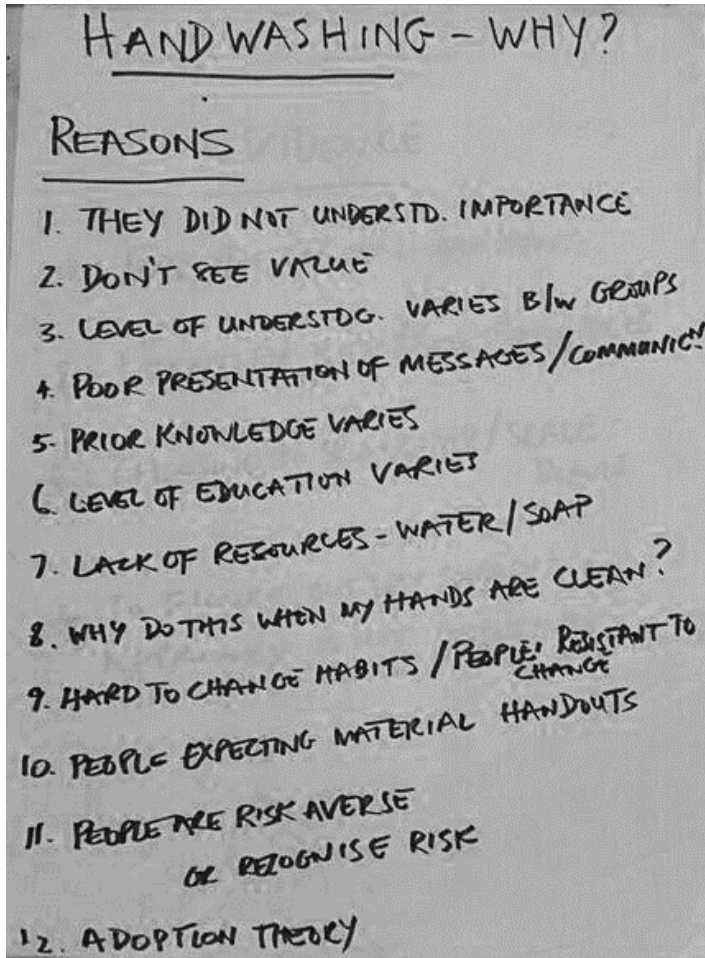 HANDWASHING - WHY?
REASONS
1. THEY DID NOT UNDERSTD. IMPORTANCE
2. DON'T SEE VALUE
3. LEVEL OF UNDERSTDG. VARIES B/W GROUPS
4. POOR PRESENTATION OF MESSAGES/COMMUNICN.
5. PRIOR KNOWLEDGE VARIES
6. LEVEL OF EDUCATION VARIES
7. LACK OF RESOURCES - WATER/SOAP
8. WHY DO THIS WHEN MY HANDS ARE CLEAN?
9. HARD TO CHANGE HABITS / PEOPLE RESISTANT TO
CHANGE
10. PEOPLE EXPECTING MATERIAL HANDOUTS
11. PEOPLE ARE RISK AVERSE
OR RECOGNISE RISK
12. ADOPTION THEORY